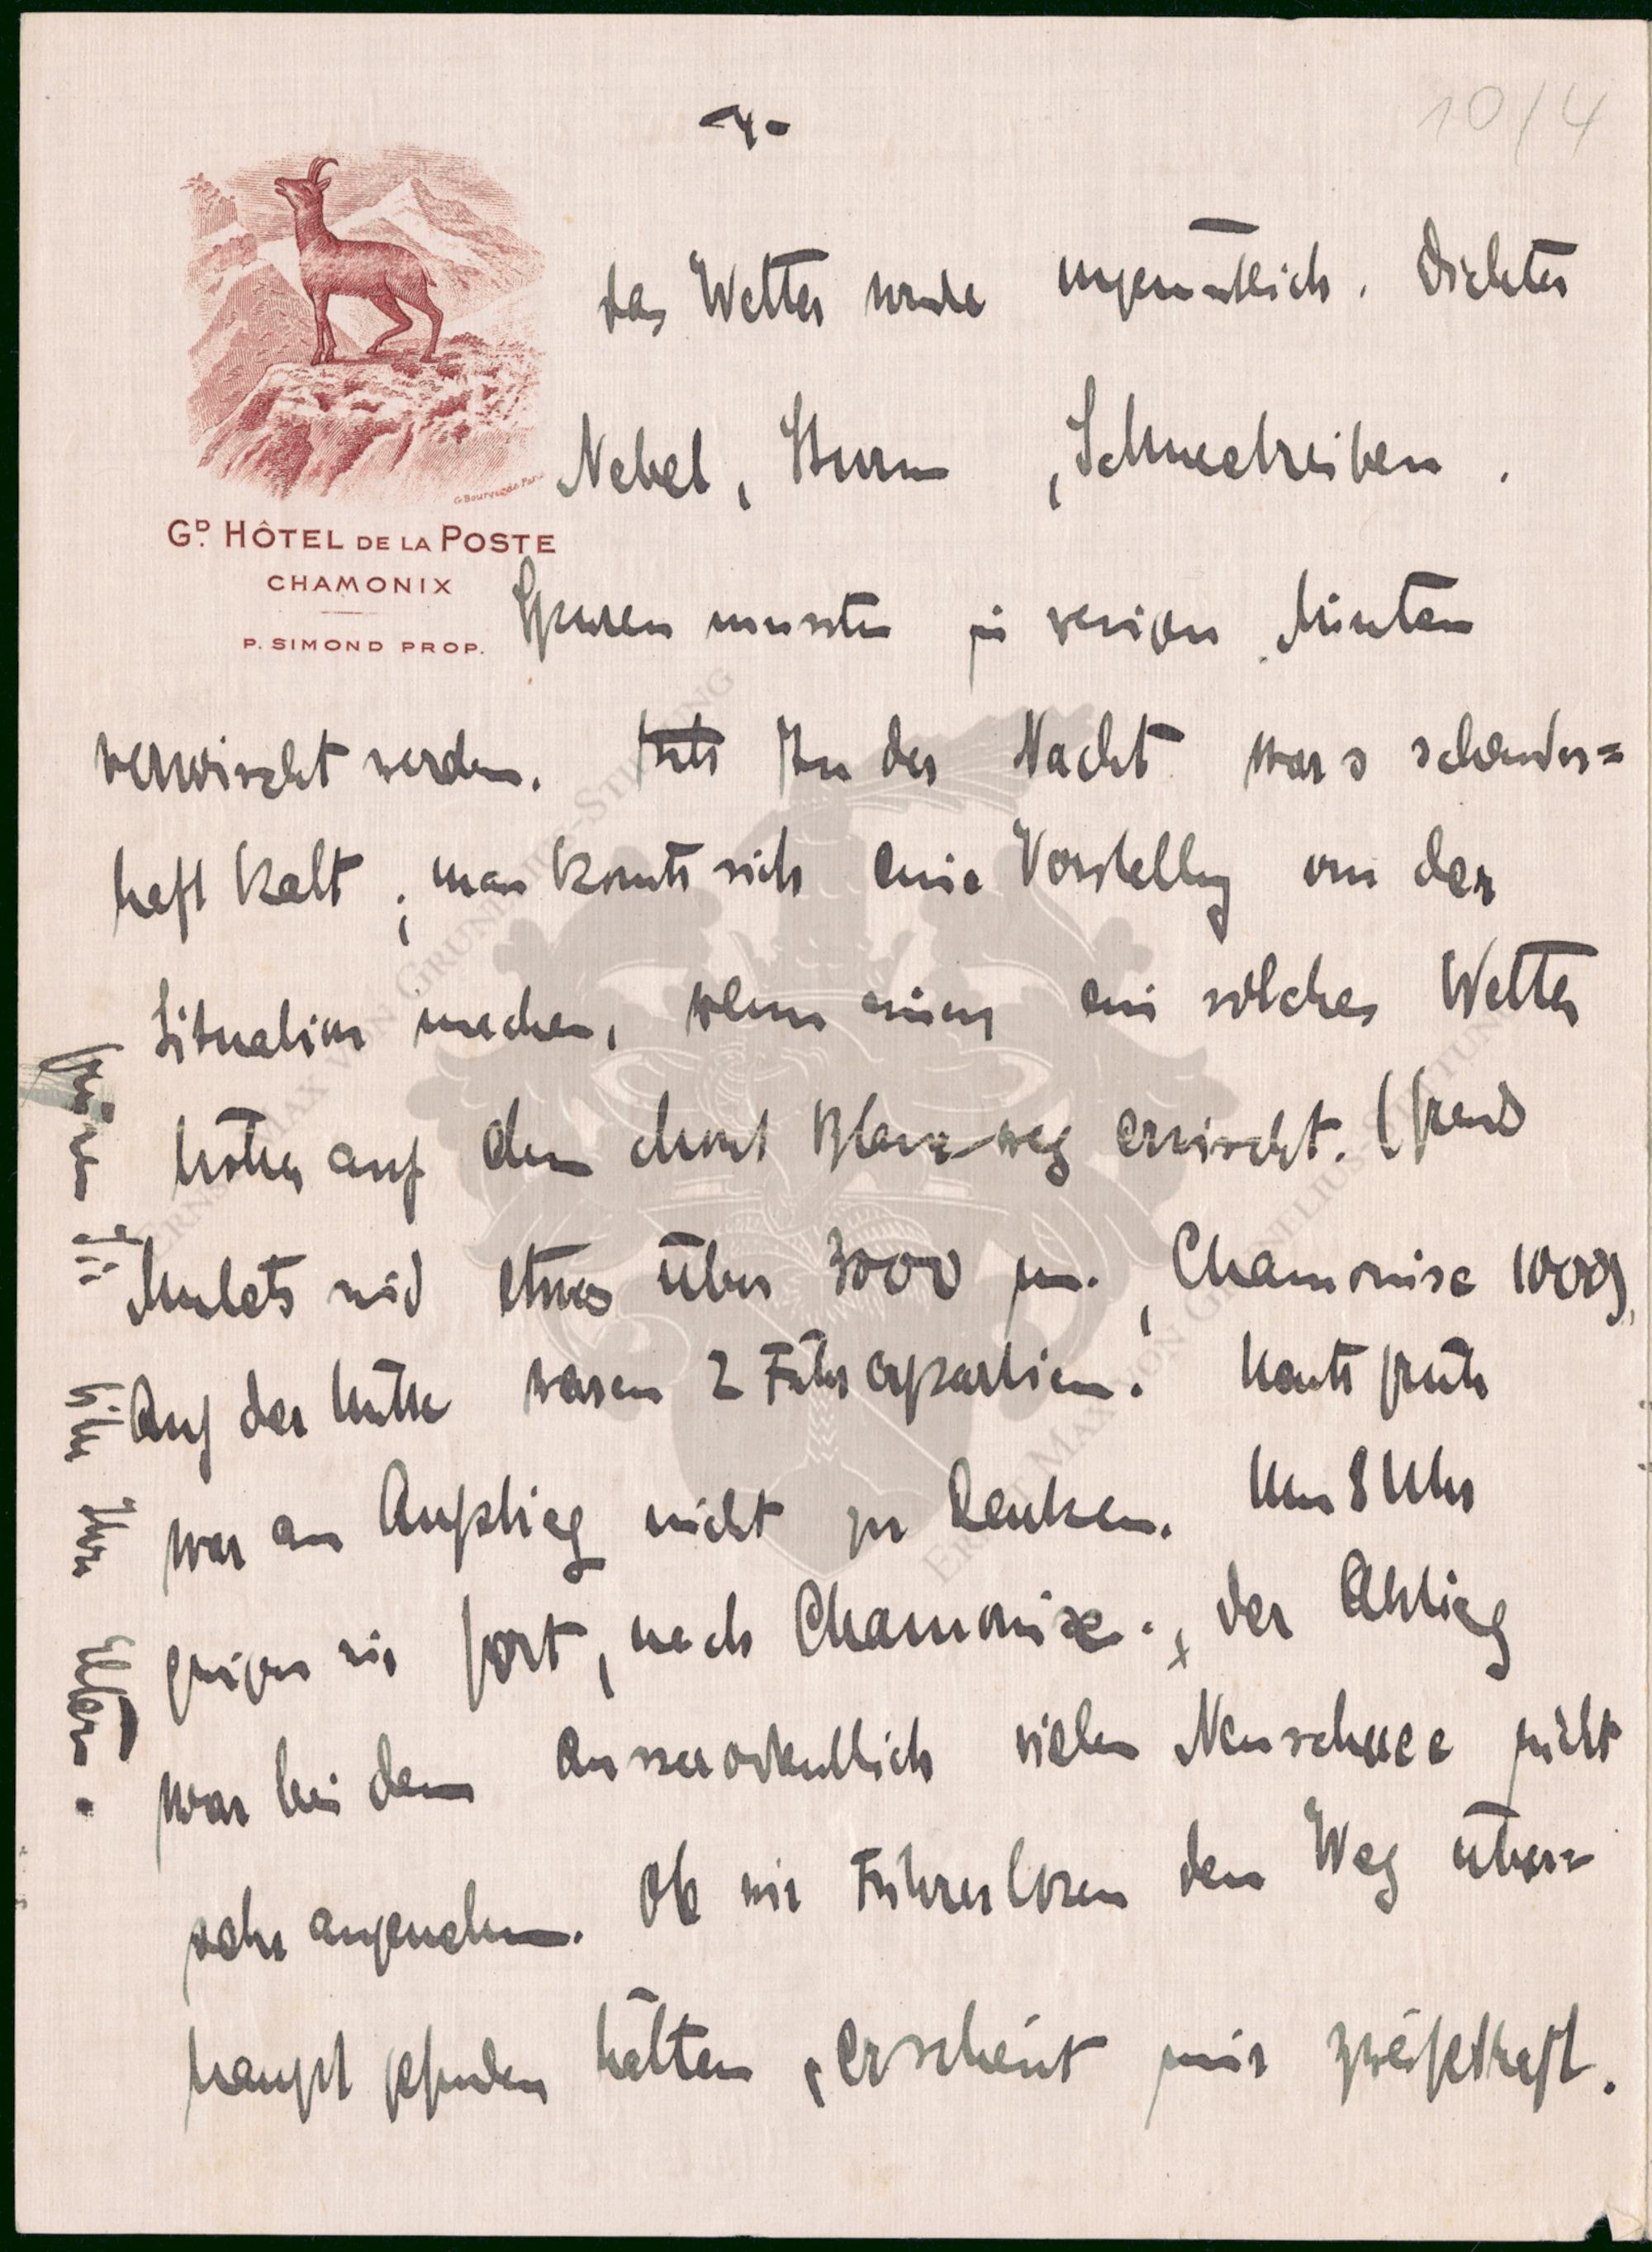 -4-
10/4
G. Bourgade Paris
GD. HÔTEL DE LA POSTE
CHAMONIX
P. SIMOND PROP.
das Wetter wurde ungemütlich. Dichter
Nebel, Sturm, Schneetreiben.
Spuren mussten in wenigen Minuten
verwischt werden. In der Nacht war's schauder=
haft kalt; man konnte sich eine Vorstellung von der
Situation machen, wenn einen ein solches Wetter
höher auf dem Mont Blanc-weg erwischt. (Grand
Mulets sind etwas über 3000 m., Chamonix 1000).
Auf der Hütte waren 2 Führerpartien. Heute früh
war an Aufstieg nicht zu denken. Um 8 Uhr
gingen wir fort, nach Chamonix., der Abstieg
war bei dem ausserordentlich vielen Neuschnee nicht
sehr angenehm. Ob wir Führerlosen den Weg über=
haupt gefunden hätten, erscheint mir zweifelhaft.
grüssen Sie bitte Ihre Eltern.
ERNST MAX VON GRUNELIUS-STIFTUNG
ERNST MAX VON GRUNELIUS-STIFTUNG